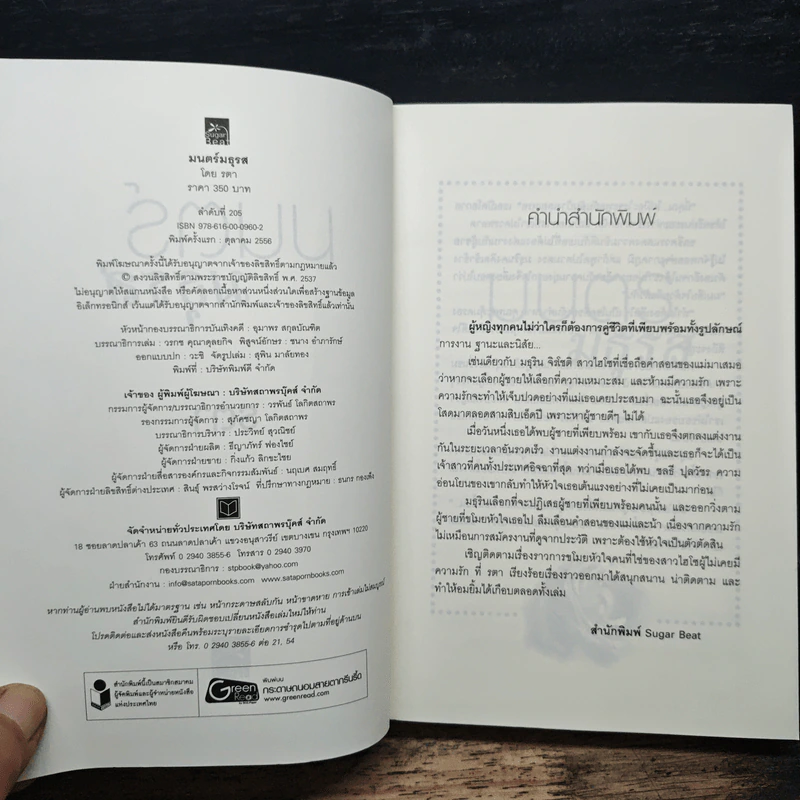 Sugar
Beat
มนตร์มธุรส
โดย รตา
ราคา 350 บาท
ลำดับที่ 205
ISBN 978-616-00-0960-2
พิมพ์ครั้งแรก : ตุลาคม 2556
พิมพ์โฆษณาครั้งนี้ได้รับอนุญาตจากเจ้าของลิขสิทธิ์ตามกฎหมายแล้ว
© สงวนลิขสิทธิ์ตามพระราชบัญญัติลิขสิทธิ์ พ.ศ. 2537
ไม่อนุญาตให้สแกนหนังสือ หรือคัดลอกเนื้อหาส่วนหนึ่งส่วนใดเพื่อสร้างฐานข้อมูล
อิเล็กทรอนิกส์ เว้นแต่ได้รับอนุญาตจากสำนักพิมพ์และเจ้าของลิขสิทธิ์แล้วเท่านั้น
หัวหน้ากองบรรณาธิการบันเทิงคดี : อุมาพร สกุลบัณฑิต
บรรณาธิการเล่ม : วรกช คุณาดุลยกิจ พิสูจน์อักษร : ชนาง อำภารักษ์
ออกแบบปก : วะชิ จัดรูปเล่ม : สุพิน มาลัยทอง
พิมพ์ที่ : บริษัทพิมพ์ดี จำกัด
เจ้าของ ผู้พิมพ์ผู้โฆษณา : บริษัทสถาพรบุ๊คส์ จำกัด
กรรมการผู้จัดการ/บรรณาธิการอำนวยการ : วรพันธ์ โลกิตสถาพร
รองกรรมการผู้จัดการ : สุภัคชญา โลกิตสถาพร
บรรณาธิการบริหาร : ประวิทย์ สุวณิชย์
ผู้จัดการฝ่ายผลิต : ธีญาภัทร์ ฟองไชย์
ผู้จัดการฝ่ายขาย : กิ่งแก้ว ลิกขะไชย
ผู้จัดการฝ่ายสื่อสารองค์กรและกิจกรรมสัมพันธ์ : นฤเบศ สมฤทธิ์
ผู้จัดการฝ่ายลิขสิทธิ์ต่างประเทศ : สินธุ์ พรสว่างโรจน์ ที่ปรึกษาทางกฎหมาย : ธนกร กองเส็ง
จัดจำหน่ายทั่วประเทศโดย บริษัทสถาพรบุ๊คส์ จำกัด
18 ซอยลาดปลาเค้า 63 ถนนลาดปลาเค้า แขวงอนุสาวรีย์ เขตบางเขน กรุงเทพฯ 10220
โทรศัพท์ 0 2940 3855-6 โทรสาร 0 2940 3970
กองบรรณาธิการ : stpbook@yahoo.com
ฝ่ายสำนักงาน : info@satapornbooks.com, www.satapornbooks.com
หากท่านผู้อ่านพบหนังสือไม่ได้มาตรฐาน เช่น หน้ากระดาษสลับกัน หน้าขาดหาย การเข้าเล่มไม่สมบูรณ์
สำนักพิมพ์ยินดีรับผิดชอบเปลี่ยนหนังสือเล่มใหม่ให้ท่าน
โปรดติดต่อและส่งหนังสือคืนพร้อมระบุรายละเอียดการชำรุดไปตามที่อยู่ด้านบน
หรือ โทร. 0 2940 3855-6 ต่อ 21, 54
สำนักพิมพ์นี้เป็นสมาชิกสมาคม
ผู้จัดพิมพ์และผู้จำหน่ายหนังสือ
แห่งประเทศไทย
Green
Read
พิมพ์บน
กระดาษถนอมสายตากรีนรี้ด
www.greenread.com
คำนำสำนักพิมพ์
ผู้หญิงทุกคนไม่ว่าใครก็ต้องการคู่ชีวิตที่เพียบพร้อมทั้งรูปลักษณ์
การงาน ฐานะและนิสัย...
เช่นเดียวกับ มธุริน จิรโชติ สาวไฮโซที่เชื่อถือคำสอนของแม่มาเสมอ
ว่าหากจะเลือกผู้ชายให้เลือกที่ความเหมาะสม และห้ามมีความรัก เพราะ
ความรักจะทำให้เจ็บปวดอย่างที่แม่เธอเคยประสบมา ฉะนั้นเธอจึงอยู่เป็น
โสดมาตลอดสามสิบเอ็ดปี เพราะหาผู้ชายดีๆ ไม่ได้
เมื่อวันหนึ่งเธอได้พบผู้ชายที่เพียบพร้อม เขากับเธอจึงตกลงแต่งงาน
กันในระยะเวลาอันรวดเร็ว งานแต่งงานกำลังจะจัดขึ้นและเธอก็จะได้เป็น
เจ้าสาวที่คนทั้งประเทศอิจฉาที่สุด ทว่าเมื่อเธอได้พบ ชลธี ปุลวัชร ความ
อ่อนโยนของเขากลับทำให้หัวใจเธอเต้นแรงอย่างที่ไม่เคยเป็นมาก่อน
มธุรินเลือกที่จะปฏิเสธผู้ชายที่เพียบพร้อมคนนั้น และออกวิ่งตาม
ผู้ชายที่ขโมยหัวใจเธอไป ลืมเลือนคำสอนของแม่และน้า เนื่องจากความรัก
ไม่เหมือนการสมัครงานที่ดูจากประวัติ เพราะต้องใช้หัวใจเป็นตัวตัดสิน
เชิญติดตามเรื่องราวการขโมยหัวใจคนที่ใช่ของสาวไฮโซผู้ไม่เคยมี
ความรัก ที่ รตา เรียงร้อยเรื่องราวออกมาได้สนุกสนาน น่าติดตาม และ
ทำให้อมยิ้มได้เกือบตลอดทั้งเล่ม
สำนักพิมพ์ Sugar Beat